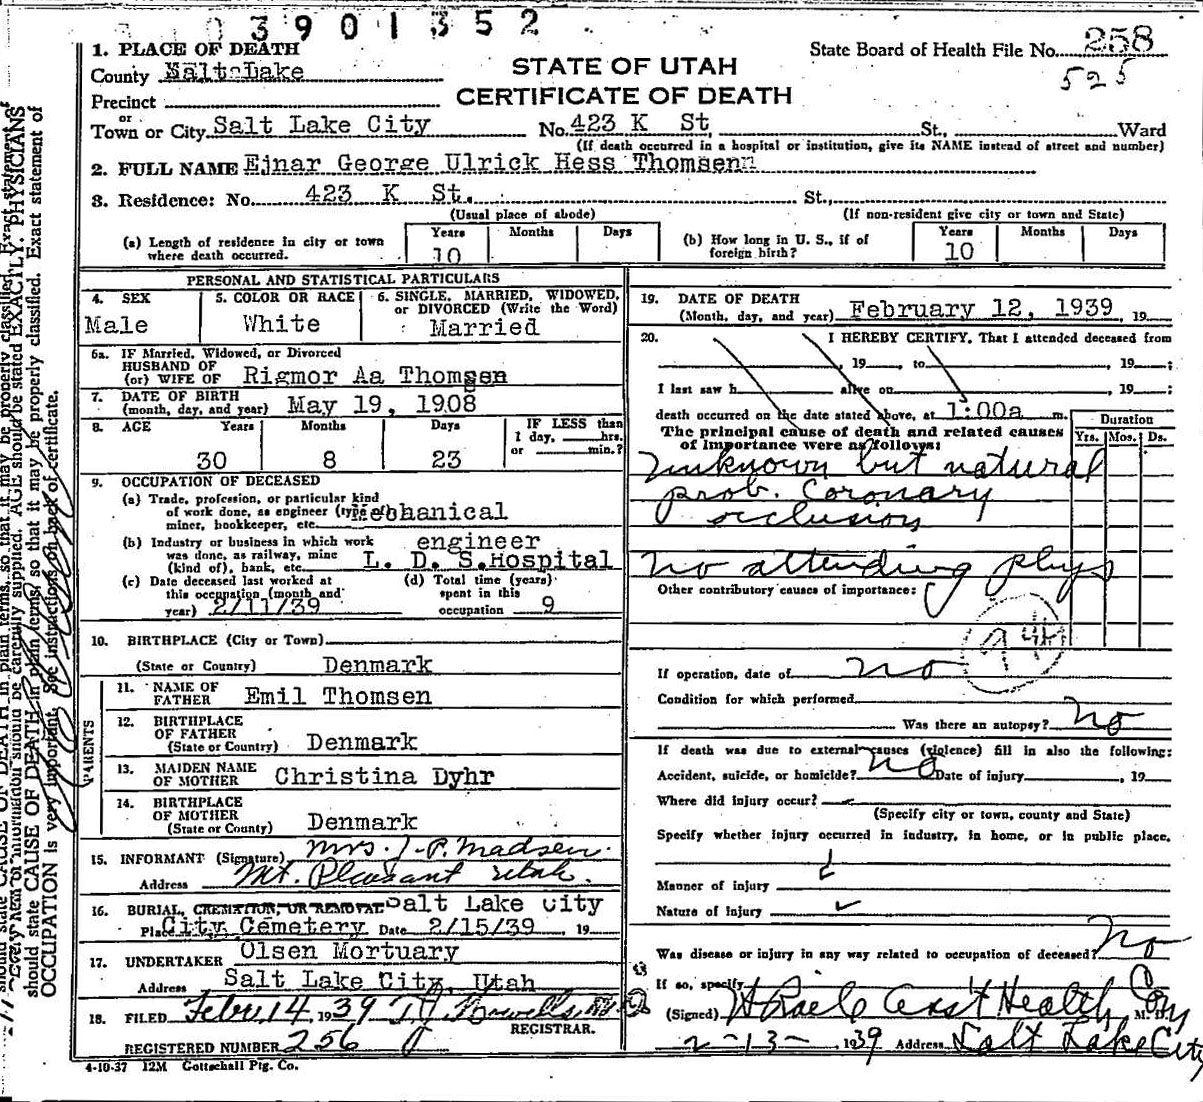 03901352
1. PLACE OF DEATH
State Board of Health File No. 258
County Salt Lake
STATE OF UTAH
525
Precinct
CERTIFICATE OF DEATH
or
Town or City Salt Lake City No. 423 K St St., Ward
(If death occurred in a hospital or institution, give its NAME instead of street and number)
2. FULL NAME Ejnar George Ulrick Hess Thomsenn
3. Residence: No. 423 K St. St.,
(Usual place of abode) (If non-resident give city or town and State)
(a) Length of residence in city or town where death occurred. Years 10 Months Days
(b) How long in U. S., if of foreign birth? Years 10 Months Days
PERSONAL AND STATISTICAL PARTICULARS
4. SEX Male
5. COLOR OR RACE White
6. SINGLE, MARRIED, WIDOWED, or DIVORCED (Write the Word) Married
6a. IF Married, Widowed, or Divorced
HUSBAND OF
(or) WIFE OF Rigmor Aa Thomsen
7. DATE OF BIRTH
(month, day, and year) May 19, 1908
8. AGE Years Months Days IF LESS than
1 day, hrs.
or min.?
30 8 23
9. OCCUPATION OF DECEASED
(a) Trade, profession, or particular kind
of work done, as engineer (type of) Mechanical
miner, bookkeeper, etc.
(b) Industry or business in which work engineer
was done, as railway, mine
(kind of), bank, etc. L. D. S. Hospital
(c) Date deceased last worked at
this occupation (month and
year) 2/11/39
(d) Total time (years)
spent in this
occupation 9
10. BIRTHPLACE (City or Town)
(State or Country) Denmark
PARENTS
11. NAME OF
FATHER Emil Thomsen
12. BIRTHPLACE
OF FATHER
(State or Country) Denmark
13. MAIDEN NAME
OF MOTHER Christina Dyhr
14. BIRTHPLACE
OF MOTHER
(State or County) Denmark
15. INFORMANT (Signature) Mrs. J. P. Madsen.
Address Mt. Pleasant Utah.
16. BURIAL, CREMATION, OR REMOVAL Salt Lake City
Place City Cemetery Date 2/15/39, 19
17. UNDERTAKER Olsen Mortuary
Address Salt Lake City, Utah
18. FILED Febru 14 1939
REGISTRAR.
REGISTERED NUMBER 256
4-10-37 12M Gottschall Ptg. Co.
19. DATE OF DEATH
(Month, day, and year) February 12, 1939, 19
20. I HEREBY CERTIFY, That I attended deceased from
, 19 , to , 19 ;
I last saw h alive on , 19 ;
death occurred on the date stated above, at 1:00a m.
The principal cause of death and related causes
of importance were as follows:
Duration
Yrs. Mos. Ds.
unknown but natural
prob. Coronary
occlusion
no attending phys
Other contributory causes of importance:
94a
If operation, date of no
Condition for which performed
Was there an autopsy? no
If death was due to external causes (violence) fill in also the following:
Accident, suicide, or homicide? no Date of injury , 19
Where did injury occur?
(Specify city or town, county and State)
Specify whether injury occurred in industry, in home, or in public place.
Manner of injury
Nature of injury
Was disease or injury in any way related to occupation of deceased? no
If so, specify
(Signed) Asst Health Com M. D.
2-13- 1939 Address Salt Lake City
should state CAUSE OF DEATH in plain terms, so that it may be properly classified. Exact statement of
OCCUPATION is very important. See instructions on back of certificate.